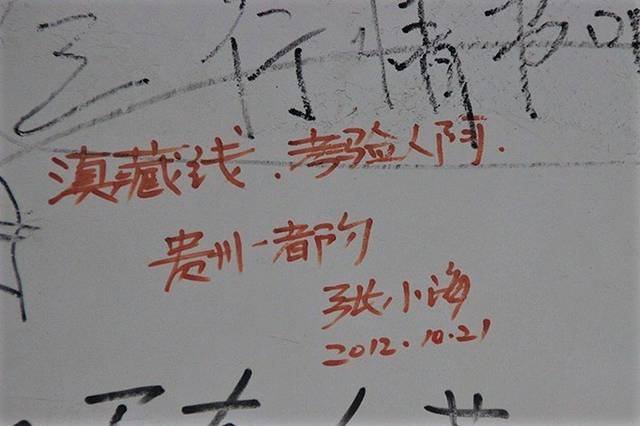 三行情书
滇藏线.考验人啊.
贵州-都匀
张小海
2012.10.21